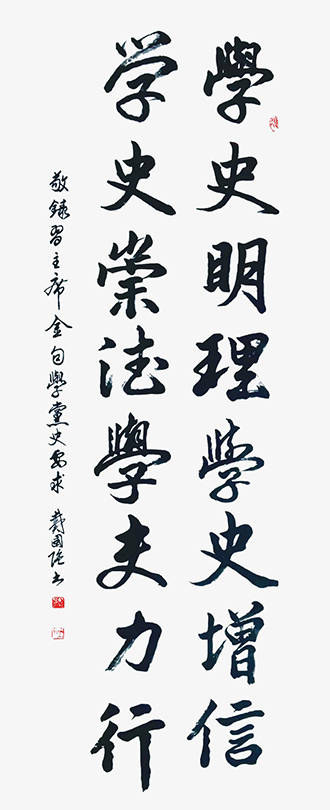 學史明理學史增信
学史崇德學史力行
敬錄習主席金句學黨史要求 戴國书